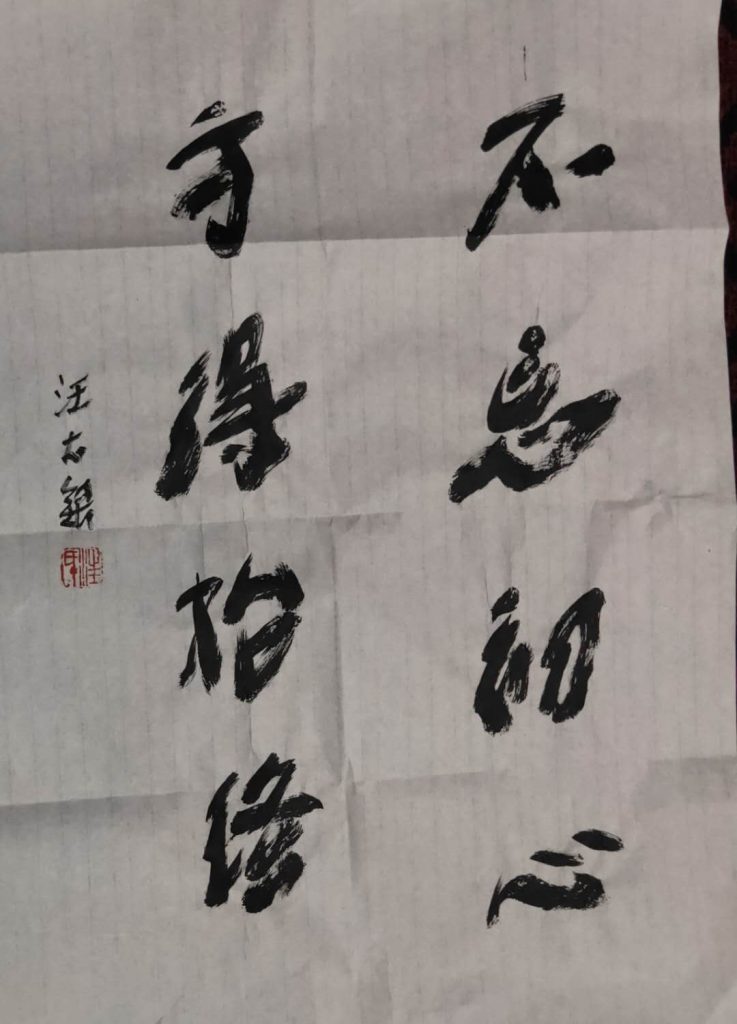 不忘初心
方得始终
汪